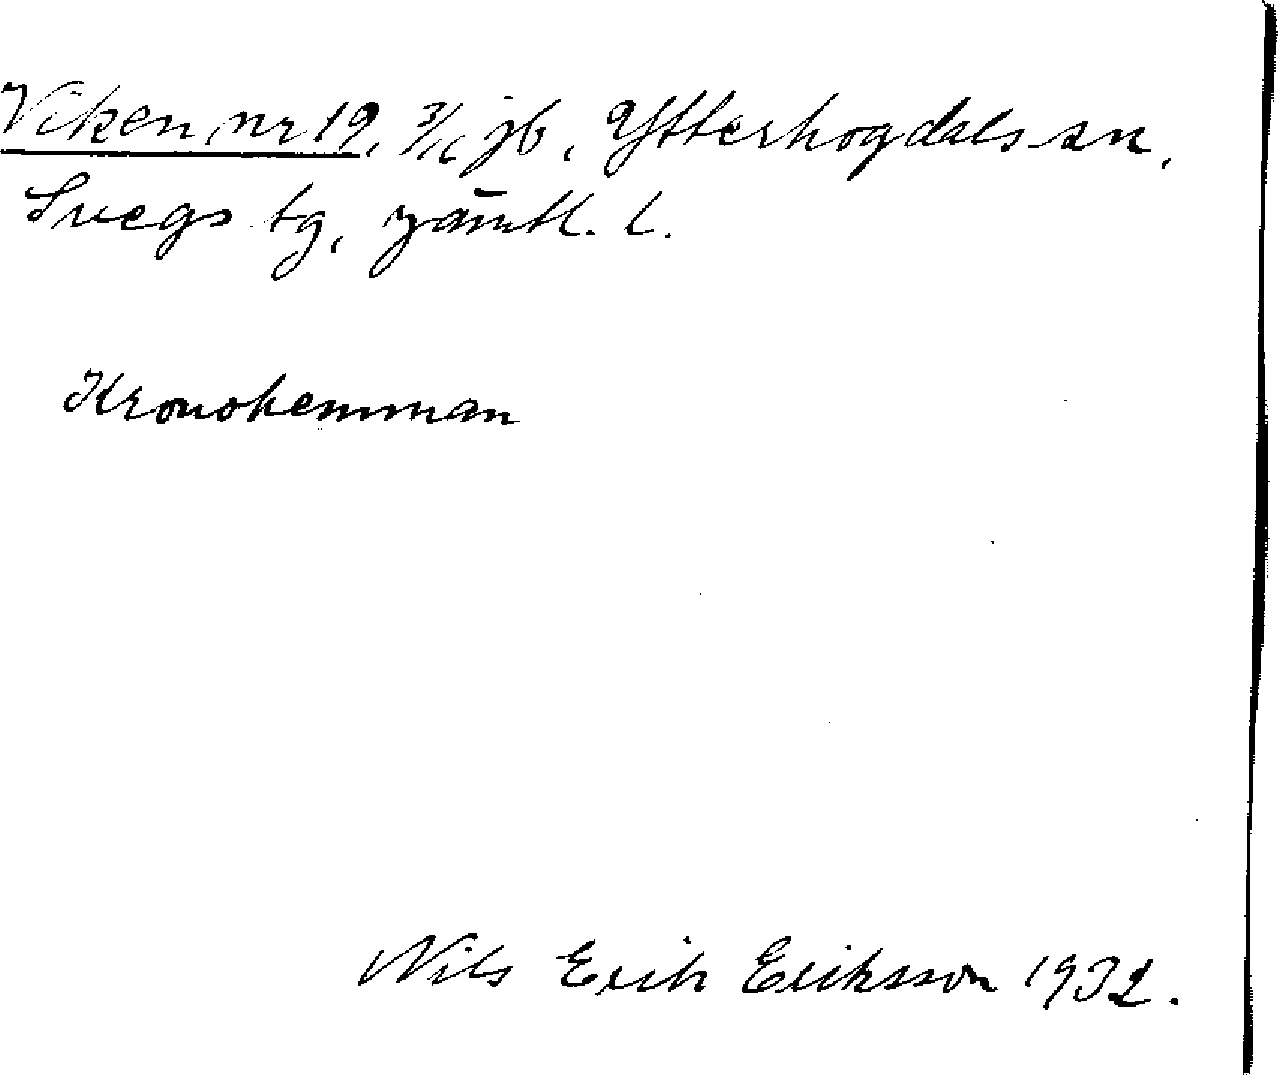 Viken nr 19, 3/6 jb, Ytterhogdals sn,
Svegs tg, Jämtl. l.
Kronohemman
Nils Erik Eriksson 1932.